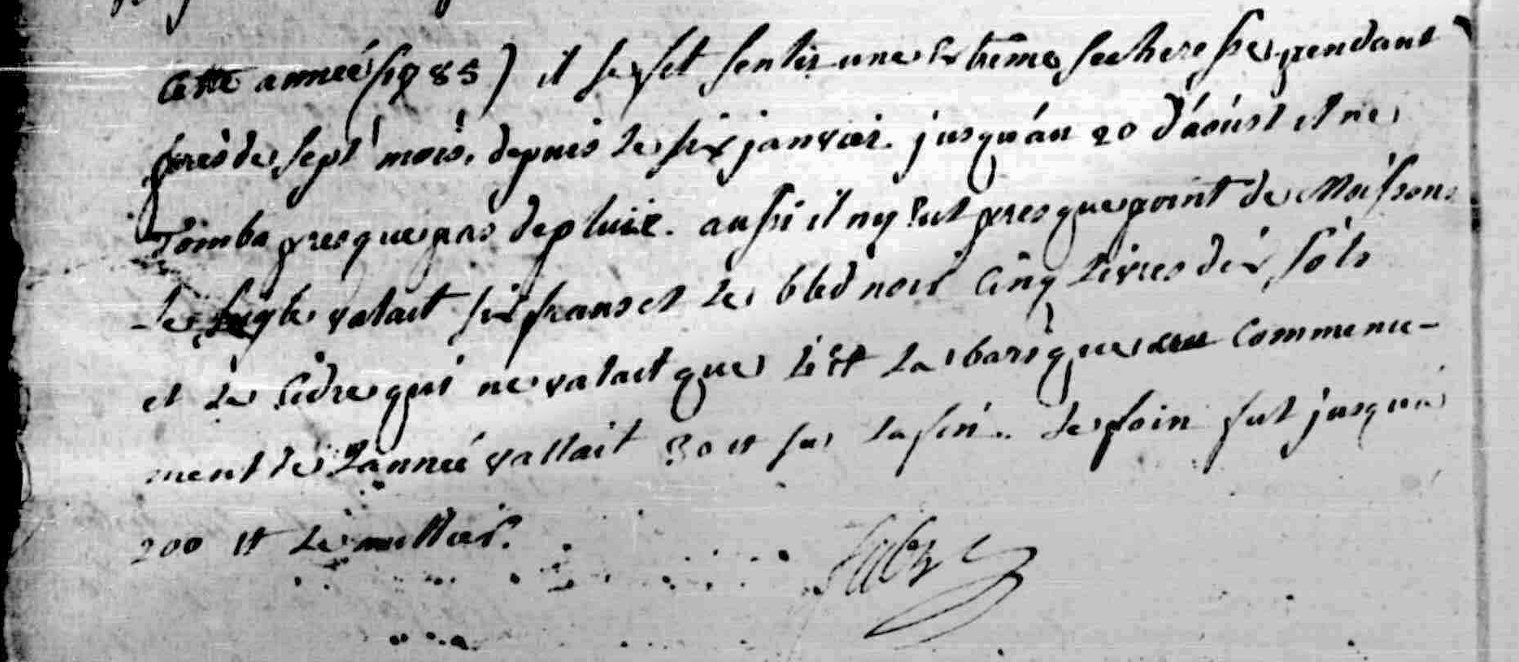 Cette année (1785) il se fit sentir une extrême secheresse pendant
près de sept mois, depuis le six janvier. jusqu'au 20 d'aoust il ne
Tomba presque pas de pluie. aussi il ny eut presque point de Moissons
Le seigle valait six francs et le bled noir Cinq Livres dix sols
et le Cidre qui ne valait que ₶ la barique au Commence-
ment de l'année vallait 30 ₶ sur la fin. Le foin fut jusqu'à
200 ₶ Le millier.